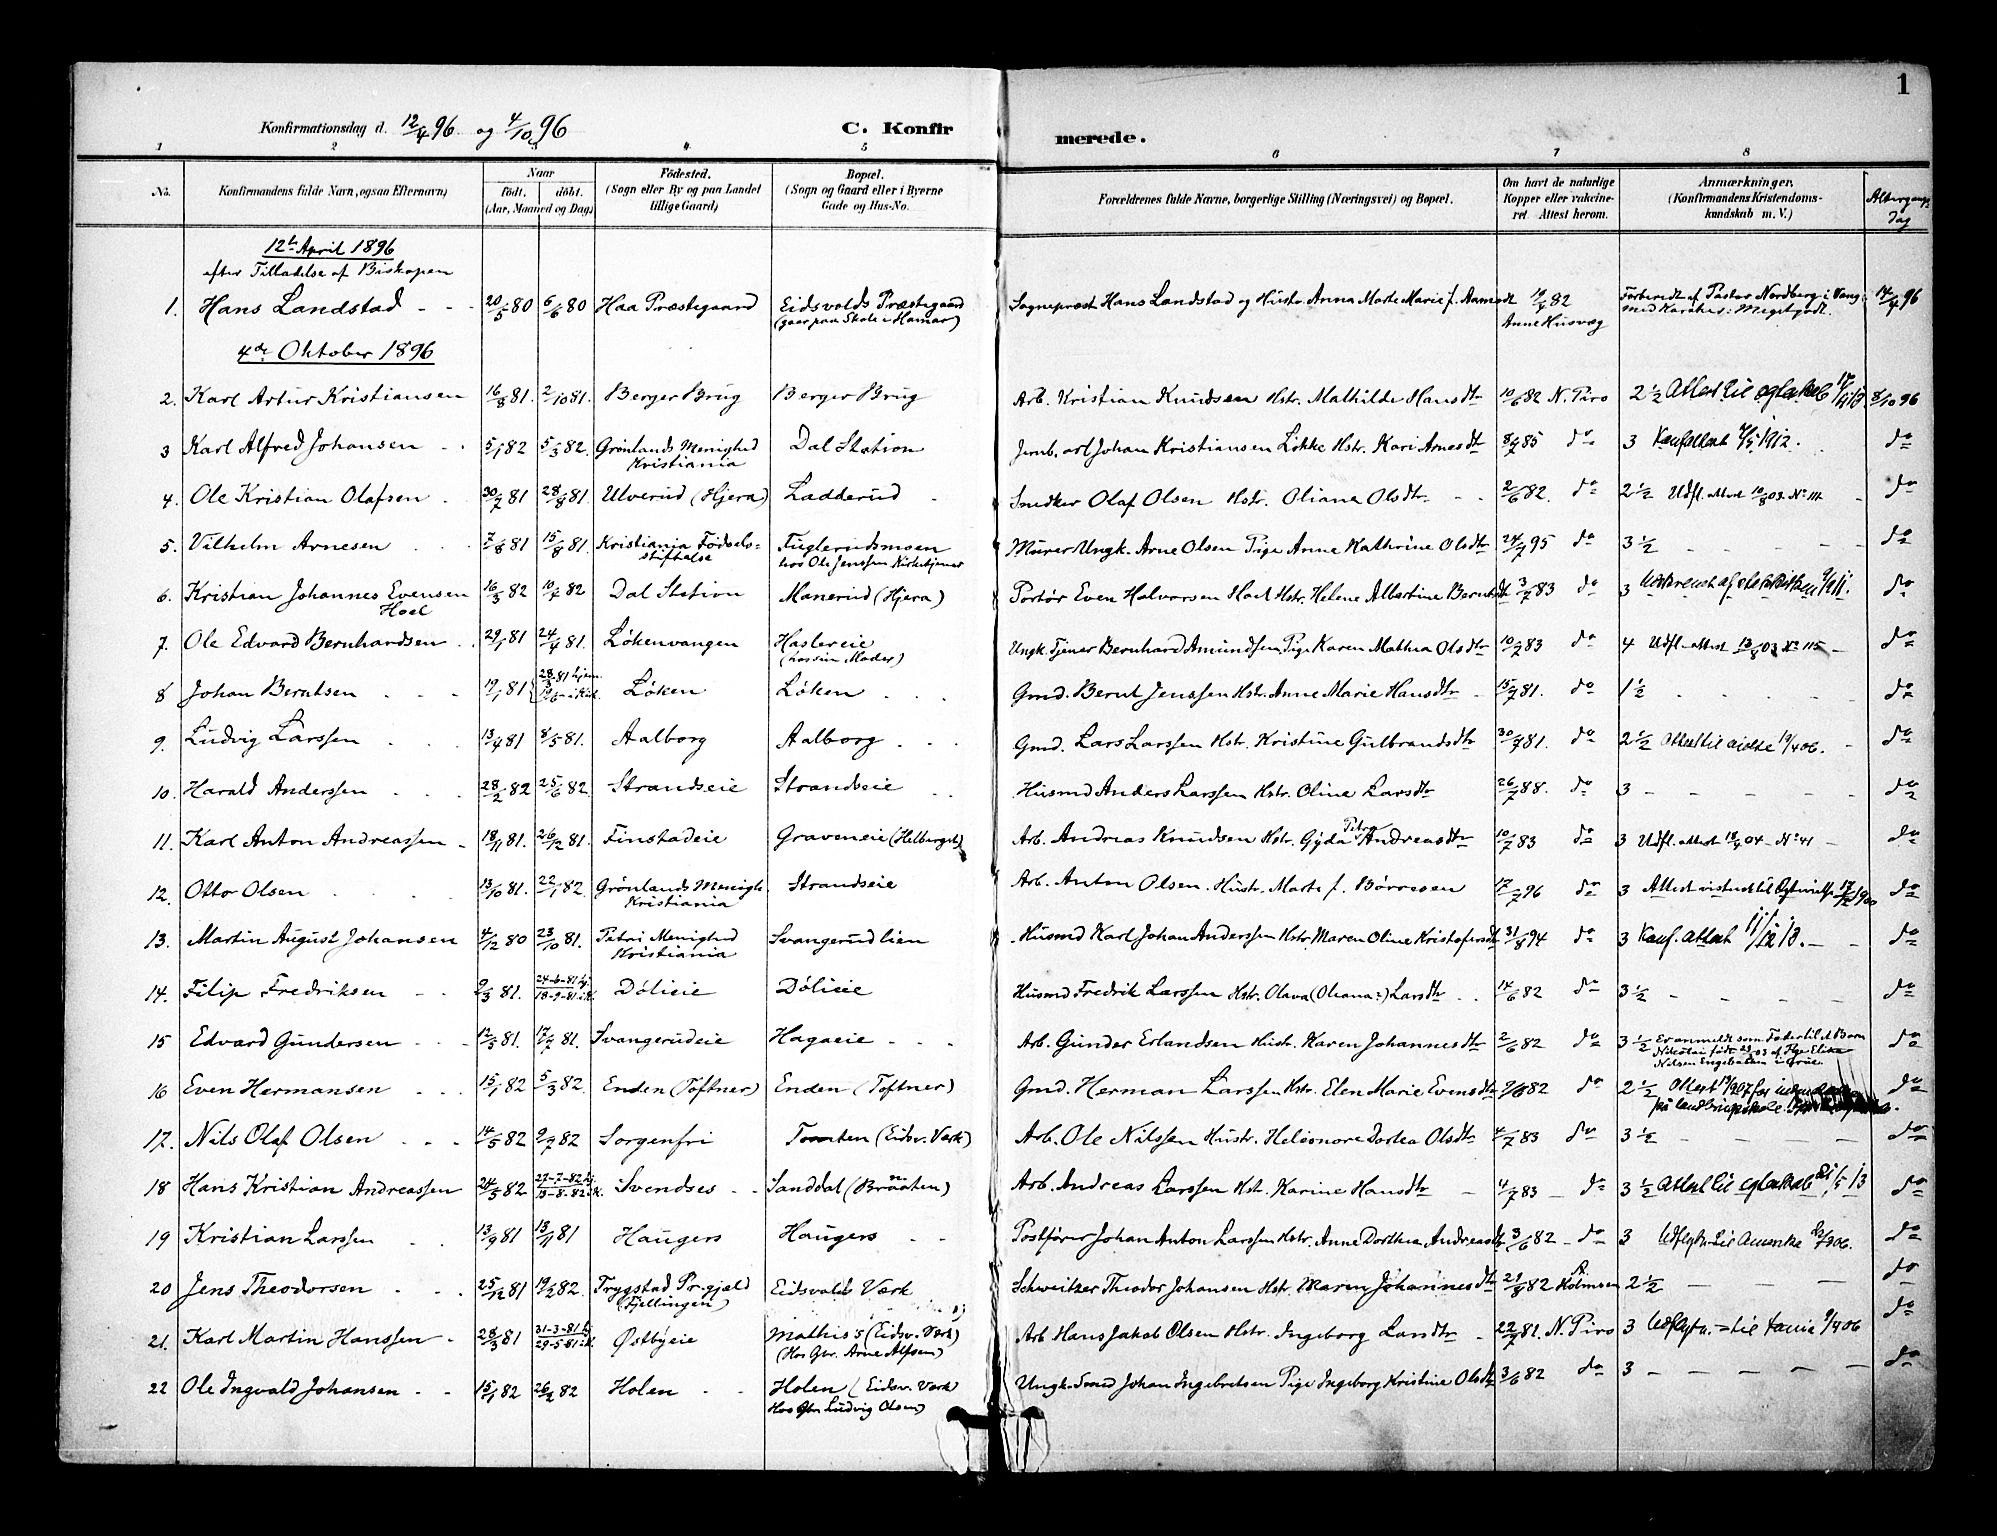 1
Konfirmationsdag d. 12/4 96 og 4/10 96
C. Konfir
merede.
1 2 3 4 5 6 7 8
No. Konfirmandens fulde Navn, ogsaa Efternavn) Naar født. døbt. (Aar, Maaned og Dag) Fødested. (Sogn eller By og paa Landet tillige Gaard) Bopæl. (Sogn og Gaard eller i Byerne Gade og Hus-No. Forældrenes fulde Navne, borgerlige Stilling (Næringsvei) og Bopæl. Om havt de naturlige Kopper eller vakcineret. Attest herom. Anmærkninger. (Konfirmandens Kristendomskundskab m. V.) Altergangs Dag
12te April 1896
efter Tilladelse af Biskopen
1. Hans Landstad 20/5 80 6/6 80 Haa Præstegaard Eidsvolds Præstegaard (gaar paa Skole i Hamar) Sogneprest Hans Landstad og Hustr. Anna Marie f. Aamodt 82 Anne Husvæg Forberedt af Pastor Nordberg i Vang med Karakter: Meget godt. 14/4 96
4de Oktober 1896
2. Karl Artur Kristiansen 16/8 81. 2/10 81. Berger Brug Berger Brug Arb. Kristian Knudsen Hstr. Mathilde Hansdtr 10/6 82 N. Piro 2 1/2 Attest til egteskab 8/10 96
3 Karl Alfred Johansen 5/1 82 5/3 82. Grønlands Menighed Kristiania Dal Station Jernb. arb Johan Kristiansen Løkke Hstr. Kari Arnesdtr 8/7 85 do 3 Konf attest 1912. do
4. Ole Kristian Olafsen 30/7 81 28/8 81. Ulverud (Hjera) Ladderud Snedker Olaf Olsen Hstr. Oliana Olsdtr 2/6 82. do 2 1/2 Udfl. attest 10/8 03. No 114 do
5. Vilhelm Arnesen 7/8 81 15/8 81. Kristiania Fødsels=stiftelse Fuglerudsmoen hos Ole Jenssen Kirketjener Murer Ungk. Arne Olsen Pige Anne Kathrine Olsdtr 24/7 95 do 3 1/2 do
6. Kristian Johannes Evensen Hoel 16/3 82 Dal Station Manerud (Hjera) Portør Even Halvorsen Hoel Hstr. Helene Albertine Berntsdtr 3/7 83 do 3 do
7. Ole Edvard Bernhardsen 29/1 81 24/4 81. Løkenvangen Haslereie (hos sin Moder) Ungk. Tjener Bernhard Amundsen, Pige Karen Mathea Olsdtr 10/7 83 do 4 Udfl. attest 13/8 03 No 115 do
8 Johan Berntsen 19/1 81 Løken Løken Gmd. Bernt Jenssen Hstr. Anne Marie Hansdtr 15/7 81. do 1 1/2 do
9. Ludvig Larssen 13/4 81 8/5 81. Aalborg Aalborg Gmd. Lars Larssen Hstr. Kristine Gulbrandsdtr 30/7 81. do 2 1/2 do
10. Harald Anderssen 28/2 82 25/6 82. Strandseie Strandseie Husmd Anders Larssen Hstr. Oline Larsdtr 26/7 88. do 3 do
11. Karl Anton Andreassen 18/11 81. 26/12 81. Finstadeie Graveneie (Helberget) Arb. Andreas Knudsen Hstr. Gyda Petra Andreasdtr 10/7 83 do 3 Udfl. attest 04 No 41 do
12. Otto Olsen 13/10 81. 22/1 82 Grønlands Menigh. Kristiania Strandseie Arb. Anton Olsen. Hustr. Marte f. Børresen 17/7 96 do 3 do
13. Martin August Johansen 4/12 80 23/10 81. Petri Menighed Kristiania Svangerudlien Husmd Karl Johan Anderssen Hstr. Maren Oline Kristofersdtr 31/8 94 do 3 Konf. attest 11/12 13. do
14. Filip Fredriksen 9/3 81. 24-6-81 hj. 18-9-81 i K. Dølieie Dølieie Husmd Fredrik Larssen Hstr. Olava (Oliana?) Larsdtr 14/6 82 do 3 1/2 do
15 Edvard Gundersen 12/5 81. 17/7 81. Svangerudeie Hagaeie Arb. Gunder Erlandsen Hustr. Karen Johannesdtr 2/6 82 do 3 1/2 Er anmeldt som Fader til et Barn Nikolai født 03 af Pige Elise Nilsen Engebakken i Grue. do
16 Even Hermansen 15/1 82 5/3 82. Enden (Toftner) Enden (Toftner) Gmd. Herman Larssen Hstr. Elen Marie Evensdtr 82 do 2 1/2 Attest på landbrugsskole do
17. Nils Olaf Olsen 14/5 82 9/7 82 Sorgenfri Tomten (Eidsv. Værk) Arb. Ole Nilssen Hustr. Heleonore Dortea Olsdtr 4/7 83 do 3 1/2 do
18 Hans Kristian Andreassen 24/5 82 Svendses Sanddal (Braaten) Arb. Andreas Larssen Hstr. Karine Hansdtr 4/7 83 do 3 1/2 Attest til egteskab 13 do
19 Kristian Larssen 13/9 81 13/11 81 Haugers Haugers Postfører Johan Anton Larssen Hstr. Anne Dorthea Andreasdtr 3/6 82 do 3 Udflyttn. til Amerika 1906. do
20 Jens Theodorsen 25/12 81 19/2 82. Trygstad Pr.gjæld (Fjellingen) Eidsvold Værk Schweitzer Theodor Johansen Hstr. Maren Johannesdtr 82 Holmsen 2 1/2 do
21. Karl Martin Hanssen 28/3 81 31-3-81 hj. 29-5-81 i K. Østbyeie Mathis's (Eidsv. Værk) (Hos Gbr. Arne Alfsen) Arb Hans Jakob Olsen Hstr. Ingeborg Larsdtr 22/7 81. N. Piro 3 do
22 Ole Ingvald Johansen 15/1 82 26/2 82 Holen Holen (Eidsv. Værk) Hos Gbr Ludvig Olsen) Ungk. Smed Johan Ingebretsen Pige Ingeborg Kristine Olsdtr 3/6 82 do 3 do